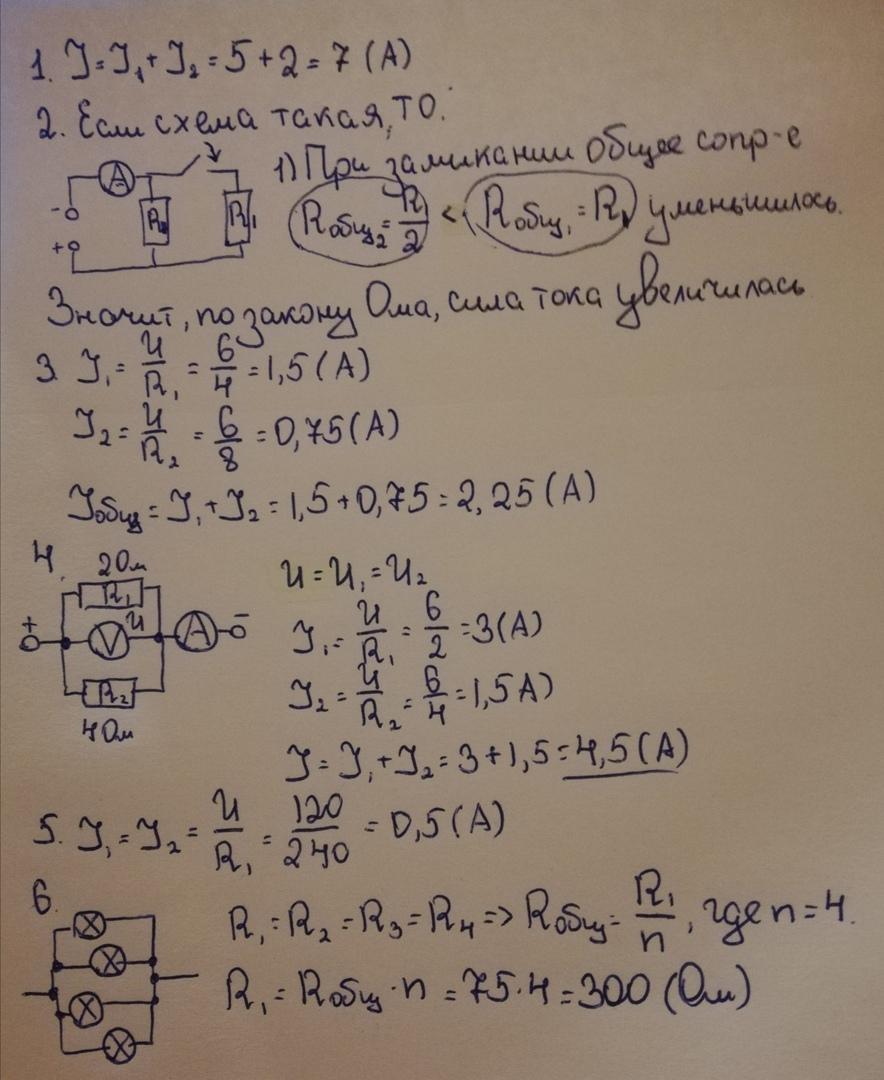 1. I = I₁ + I₂ = 5 + 2 = 7 (А)
2. Если схема такая, то:
А
R₁
-
+
1) При замикании общее сопр-е
Rобщ₂ = R/2 < Rобщ₁ = R₁ уменьшилось.
Значит, по закону Ома, сила тока увеличилась
3. I₁ = U/R₁ = 6/4 = 1,5 (А)
I₂ = U/R₂ = 6/8 = 0,75 (А)
Iобщ = I₁ + I₂ = 1,5 + 0,75 = 2,25 (А)
4.
2Ом
R₁
+ V U А -
R₂
4Ом
U = U₁ = U₂
I₁ = U/R₁ = 6/2 = 3 (А)
I₂ = U/R₂ = 6/4 = 1,5 А)
I = I₁ + I₂ = 3 + 1,5 = 4,5 (А)
5. I₁ = I₂ = U/R₁ = 120/240 = 0,5 (А)
6.
R₁ = R₂ = R₃ = R₄ => Rобщ = R₁/n, где n = 4.
R₁ = Rобщ · n = 75 · 4 = 300 (Ом)